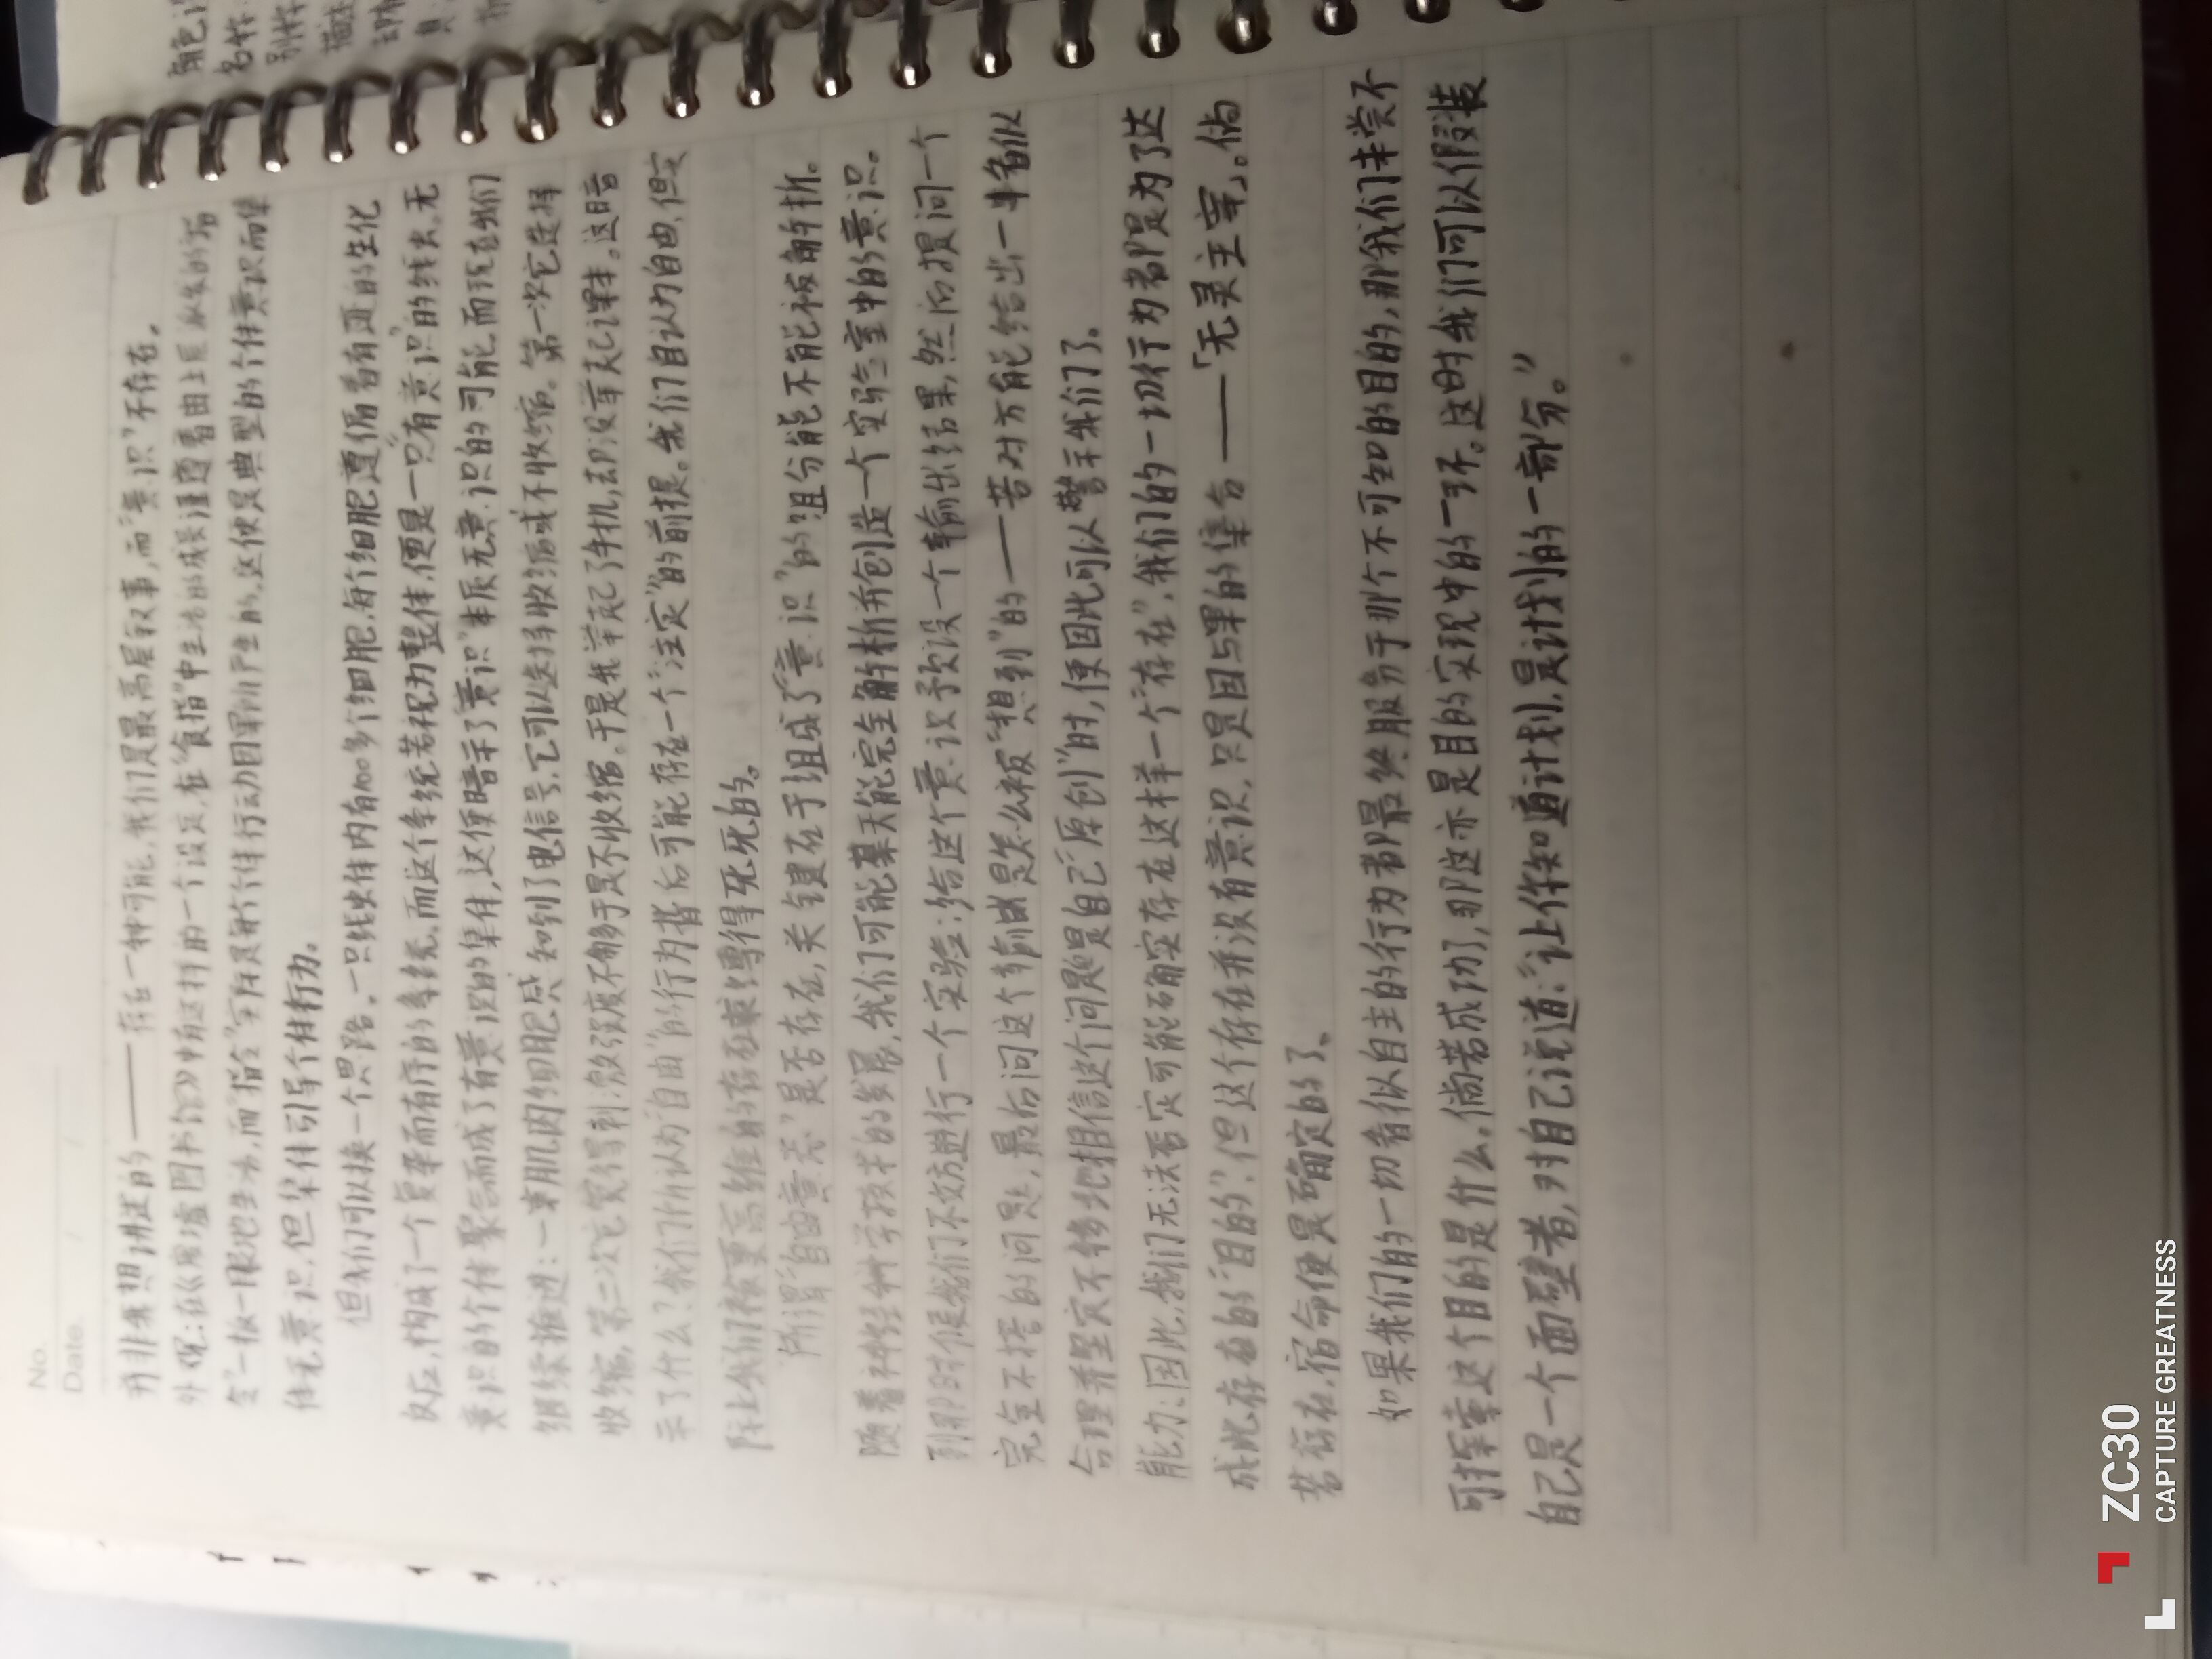 No.
Date. / /
并非我想讲述的——存在一种可能,我们是最高层叙事,而“意识”不存在。
外观:在《废墟图书馆》中有这样的一个设定,在“食指”中生活的成员遵循着由上层颁发的“指
令”一板一眼地生活,而“指令”实际是那个体行动因果所产生的,这便是典型的个体意识而集
体无意识,但集体引导个体行为。
但我们可以换一个思路。一只线虫体内有1000多个细胞,每个细胞遵循着有迹的生化
反应,构成了一个复杂而有序的系统,而这个系统若视为整体,便是一只“有意识”的线虫。无
意识的个体聚合而成了有意识的集体,这便暗示了“意识”本质无意识的可能,而现在我们
继续推进:一束肌肉细胞感知到了电信号,它可以选择收缩或不收缩。第一次它选择
收缩,第二次它觉得刺激强度不够于是不收缩。于是我举起了手机,却没举起课本。这暗
示了什么?我们所认为“自由”的行为背后可能存在一个“注定”的前提。我们自认为自由,但实
际上我们被更高维的存在束缚得死死的。
所谓“自由意志”是否存在,关键在于组成了“意识”的组分能不能被解析。
随着神经科学技术的发展,我们可能某天能完全解析并创造一个实验室中的意识。
到那时候我们不妨进行一个实验:给这个意识予预设一个输出结果,然后提问一个
完全不搭的问题,最后问这个输出是怎么被“想到”的——若对方能给出一串看似
合理并坚定不移地相信这个问题是自己“原创”时,便因此可以警示我们了。
能力;因此,我们无法否定可能确实存在这样一个“存在”,我们的一切行为都是为了达
成此存在的“目的”,但这个存在并没有意识,只是因与果的集合——「无灵主宰」。倘
若存在,宿命便是确定的了。
如果我们的一切看似自主的行为都最终服务于那个不可知的目的,那我们未尝不
可探索这个目的是什么。倘若成功了,那这亦是目的实现中的一环。这时我们可以假装
自己是一个面壁者,对自己说道:“让你知道计划,是计划的一部分。”
角色
名称
ZC30
CAPTURE GREATNESS